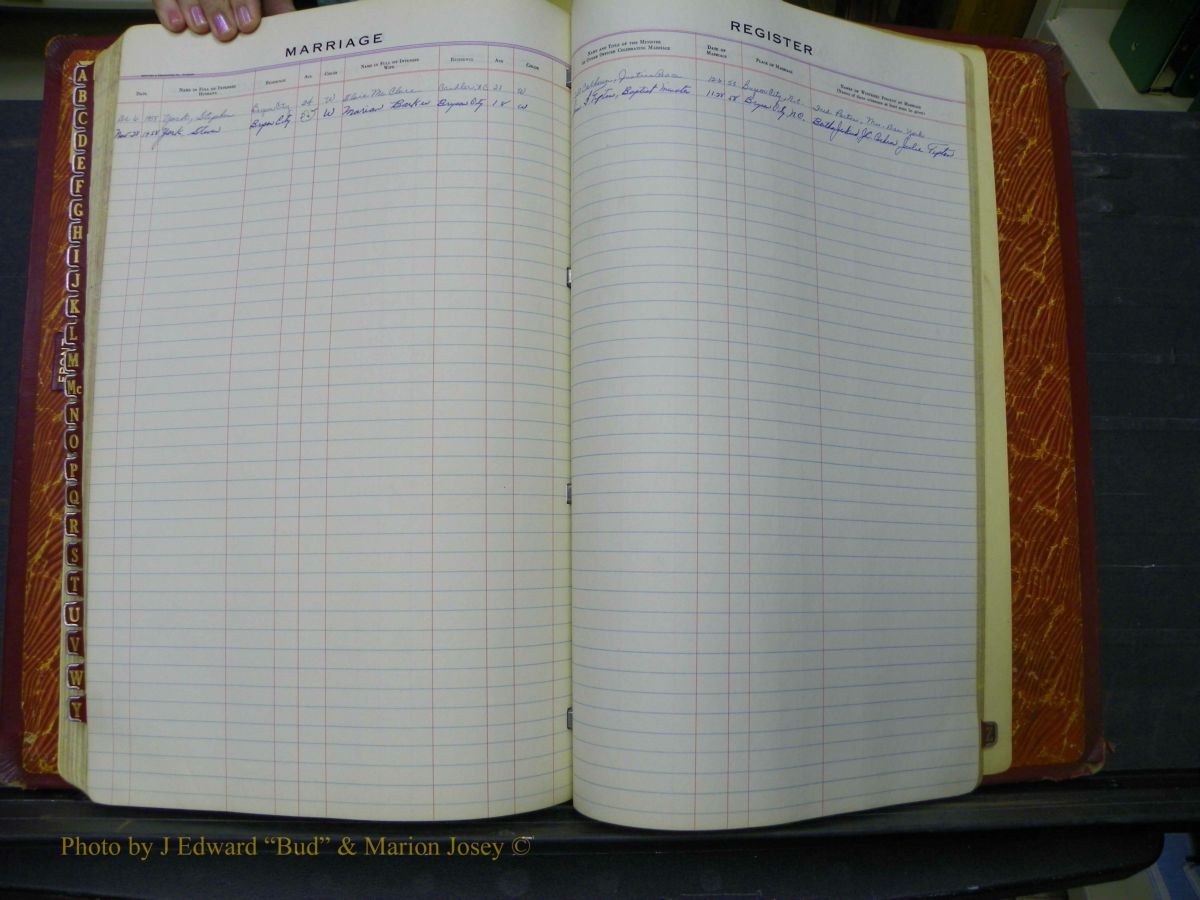 MARRIAGE
REGISTER
DATE
NAME IN FULL OF INTENDED HUSBAND
RESIDENCE
AGE
COLOR
NAME IN FULL OF INTENDED WIFE
RESIDENCE
AGE
COLOR
NAME AND TITLE OF THE MINISTER OR OTHER OFFICER CELEBRATING MARRIAGE
DATE OF MARRIAGE
PLACE OF MARRIAGE
NAMES OF WITNESSES PRESENT AT MARRIAGE
(Names of three witnesses at least must be given)
Dec 6 1955 York, Stephen Bryson City 24 W McClure Candler NC 21 W Calhoun, Justice Peace 12-6-55 Bryson City, N.C. Mrs. York
Nov. 28 York Bryson City W Marion Barker Bryson City 18 W Tipton, Baptist Minister 11-28-58 Bryson City, N.C. Julia Tipton
A
B
C
D
E
F
G
H
I
J
K
L
M
Mc
N
O
P
Q
R
S
T
U
V
W
Y
FRONT
Z
Photo by J Edward “Bud” & Marion Josey ©